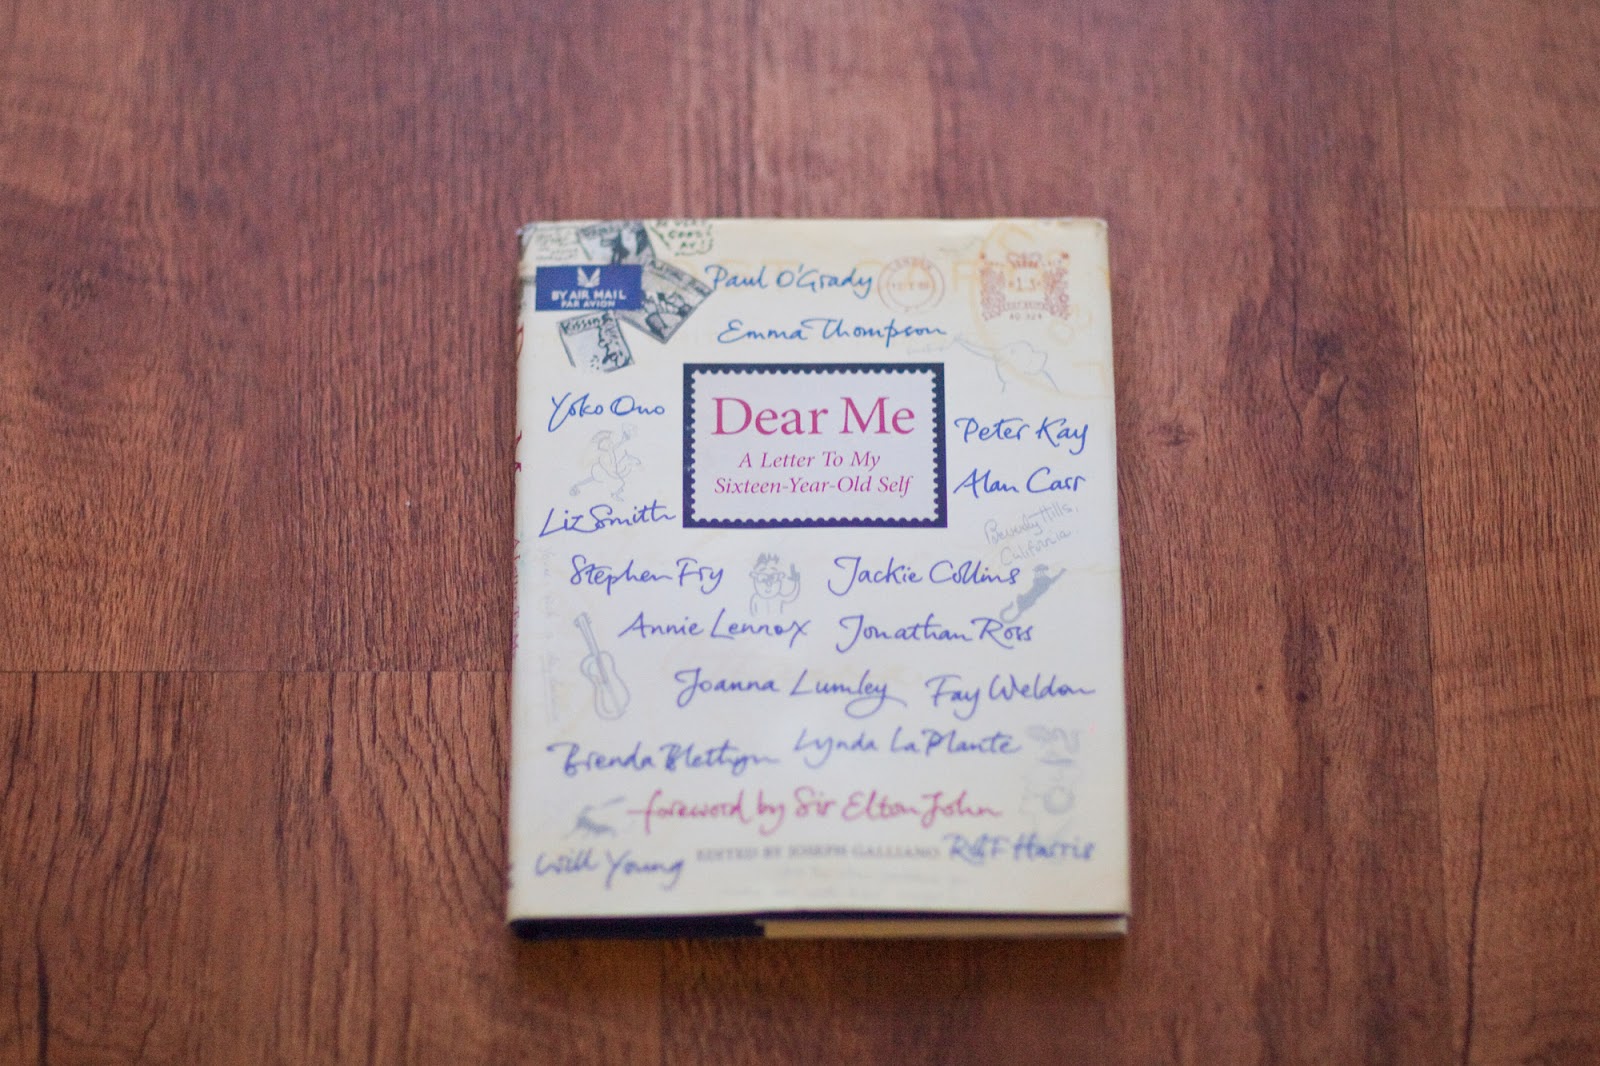 BY AIR MAIL
PAR AVION
Kissing
Paul O'Grady
LONDON
Emma Thompson
Yoko Ono
Dear Me
A Letter To My
Sixteen-Year-Old Self
Peter Kay
Alan Carr
Liz Smith
Beverly Hills,
California
Stephen Fry
Jackie Collins
Annie Lennox
Jonathan Ross
Joanna Lumley
Fay Weldon
Brenda Blethyn
Lynda La Plante
foreword by Sir Elton John
Will Young
EDITED BY JOSEPH GALLIANO
Rolf Harris